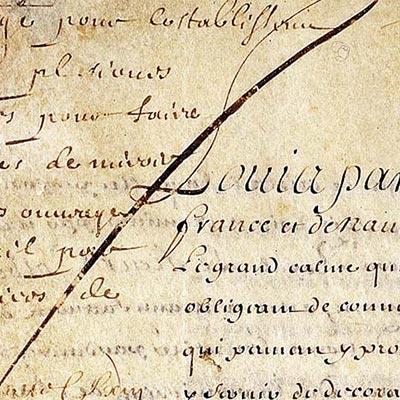 pour lestablissem
plusieurs
pour faire
es de miroir
s ouvrages
ices de
Louis par
france et de nau
Le grand calme qu
de conn
qui peuvent y pro
y servir de decora